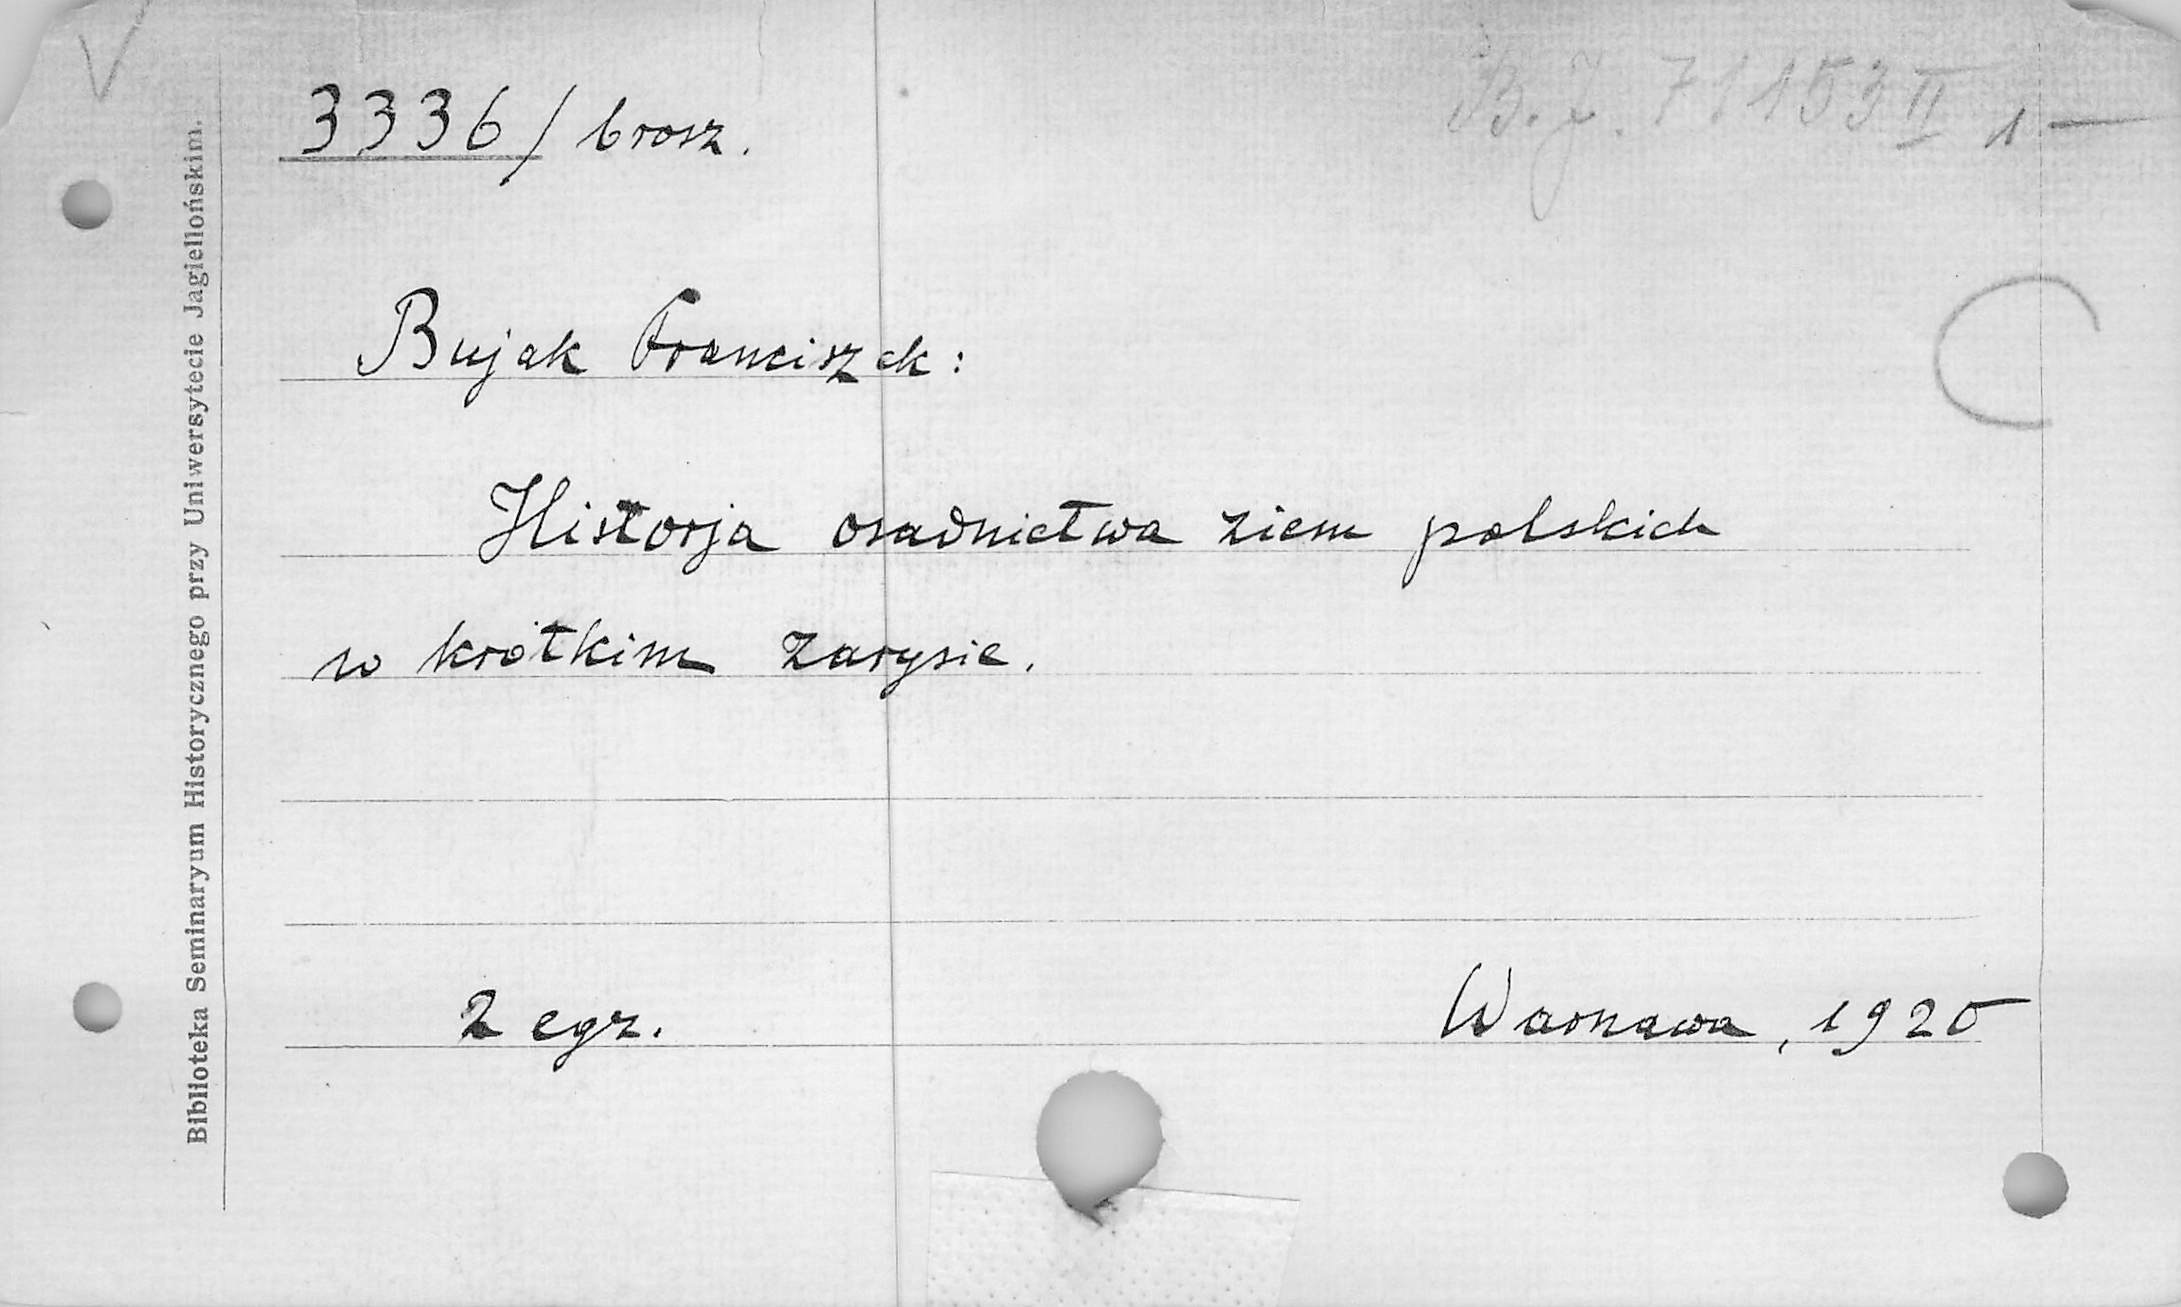 3336/brosz.
B. J. 71153 II 1 —
Bujak Franciszek:
Historja osadnictwa ziem polskich
w krótkim zarysie.
2 egz.
Warszawa, 1920
Biblioteka Seminaryum Historycznego przy Uniwersytecie Jagiellońskim.